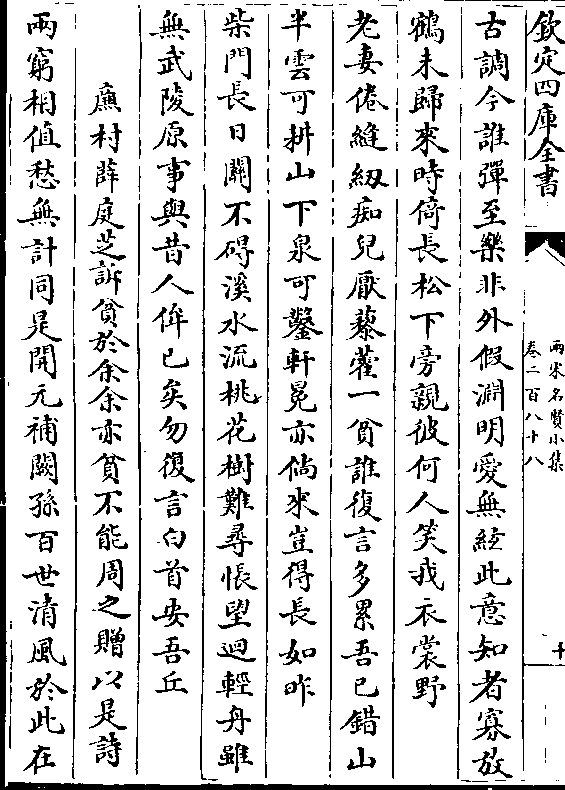 欽定四庫全書
兩宋名賢小集
卷二百八十八
十
古調今誰彈至樂非外假淵明愛無絃此意知者寡放
鶴未歸來時倚長松下旁親彼何人笑我衣裳野
老妻倦縫紉痴兒厭藜藿一貧誰復言多累吾已錯山
半雲可耕山下泉可鑿軒冕亦倘來豈得長如昨
柴門長日關不碍溪水流桃花樹難尋悵望迴輕舟雖
無武陵原事與昔人侔已矣勿復言白首安吾丘
廉村薛庭芝訴貧於余余亦貧不能周之贈以是詩
兩窮相值愁無計同是開元補闕孫百世清風於此在